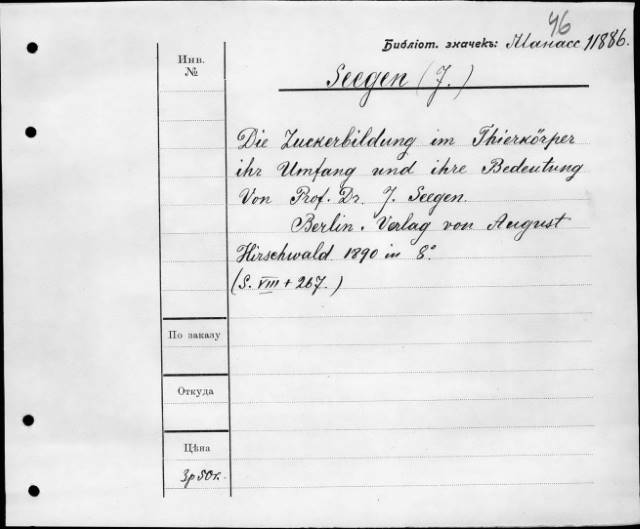 46
Библіот. значекъ: Манасс 11886.
Инв.
№
Seegen (J.)
Die Zuckerbildung im Thierkörper
ihr Umfang und ihre Bedeutung
Von Prof. Dr. J. Seegen.
Berlin. Verlag von August
Hirschwald 1890 in 8°
(S. VIII + 267.)
По заказу
Откуда
Цѣна
3р 50к.